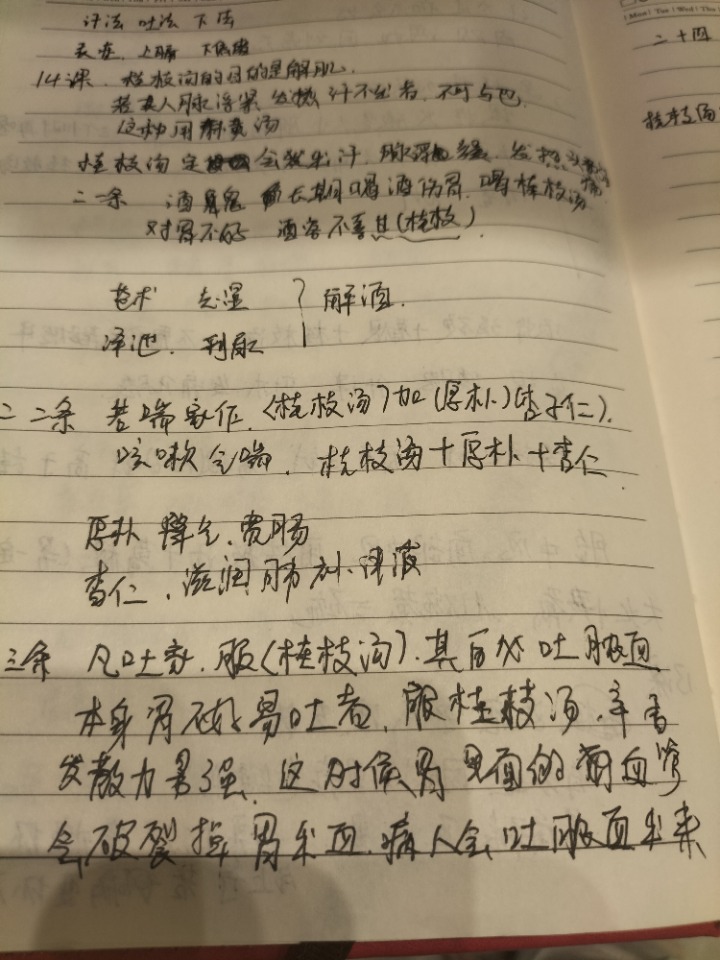 汗法 吐法 下法
在 上 下
14课. 桂枝汤的目的是解肌.
若其人脉浮紧 发热 汗不出者. 不可与也
这种用麻黄汤
桂枝汤 定 会发出汗. 脉浮缓. 发热
二一条 酒鬼 长期喝酒伤胃. 喝桂枝汤
对胃不好 酒客不喜甘(桂枝).
苍术 去湿 } 解酒.
泽泻. 利尿
二二条 若喘家作.〈桂枝汤〉加(厚朴)(杏子仁).
咳嗽会喘. 桂枝汤+厚朴+杏仁
厚朴 降气. 宽肠
杏仁. 滋润肺 津液
三条 凡吐家. 服〈桂枝汤〉. 其后必吐脓血
本身胃不好易吐者. 服桂枝汤. 辛香
发散力量强. 这时候胃里面的 血管
会破裂掉 胃出血. 病人会吐脓血出来
二十四
桂枝汤